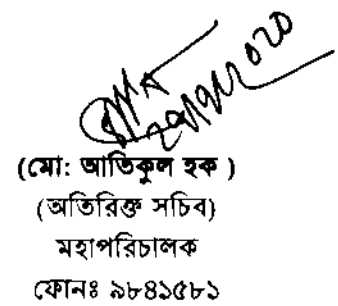 (মো: আতিকুল হক )
(অতিরিক্ত সচিব)
মহাপরিচালক
ফোনঃ ৯৮৪১৫৮১